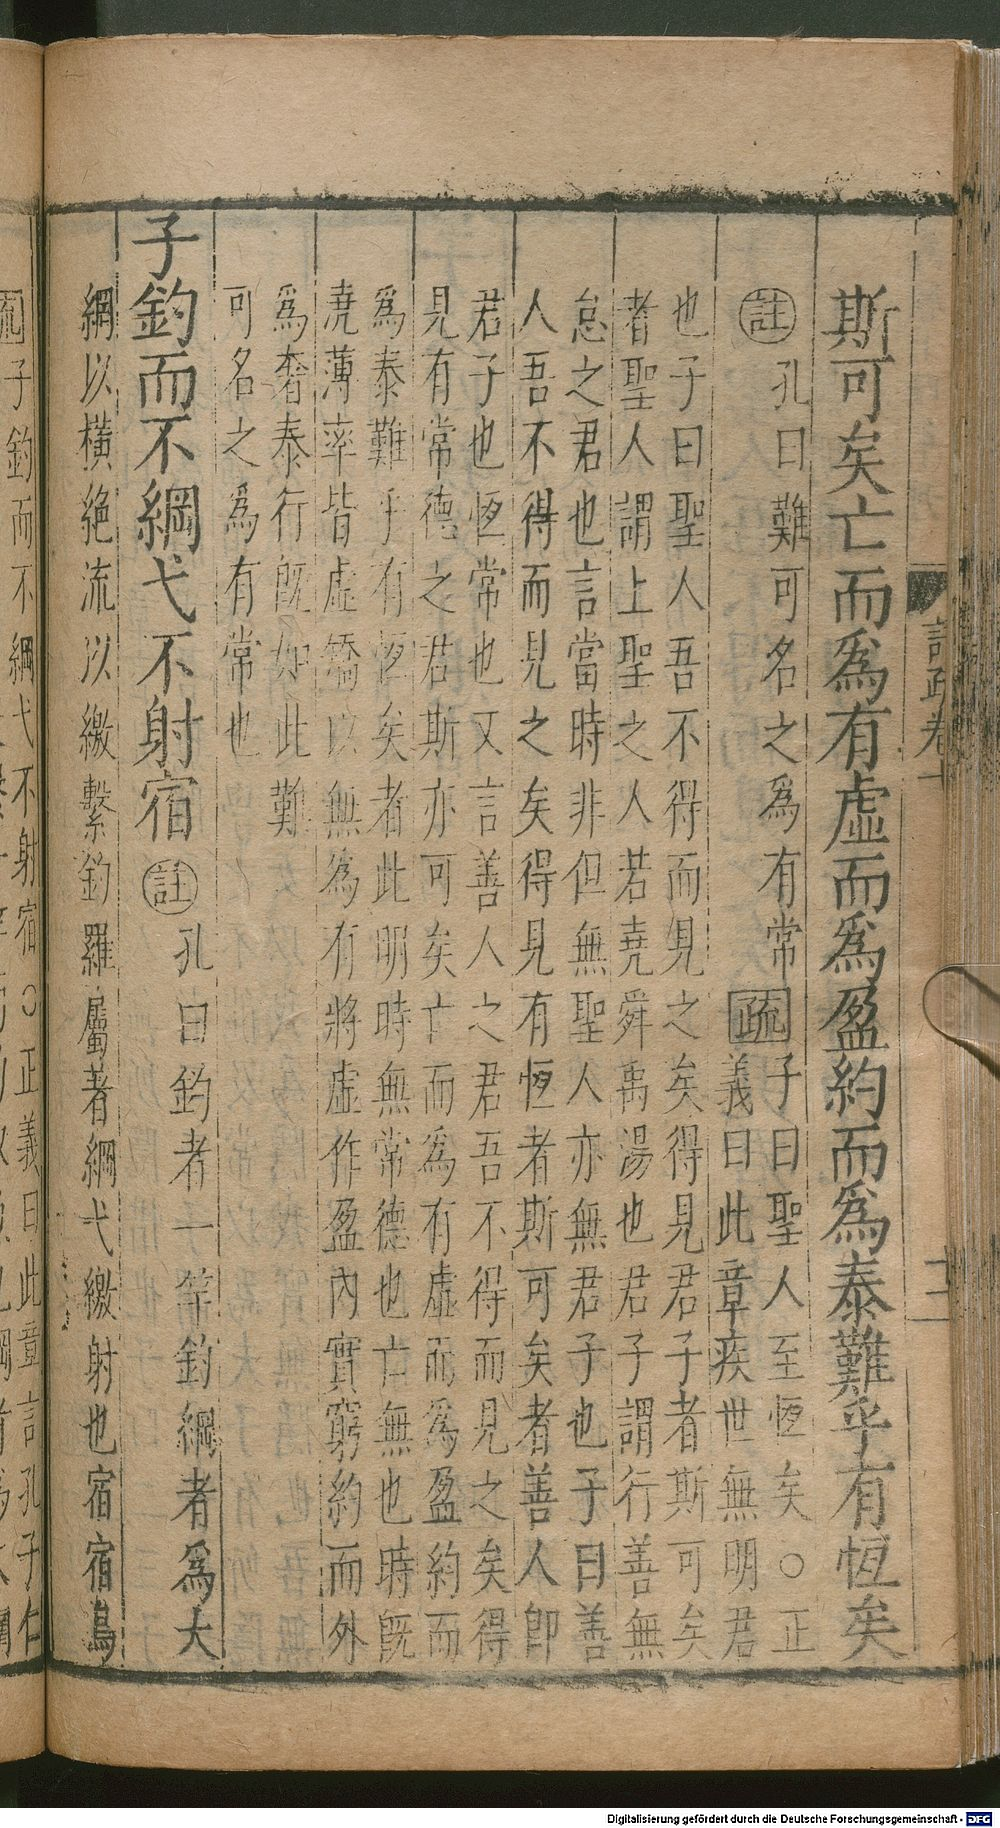 斯可矣亡而爲有虛而爲盈約而爲泰難乎有恆矣
註孔曰難可名之爲有常疏子曰聖人至恆矣○正
義曰此章疾世無明君
也子曰聖人吾不得而見之矣得見君子者斯可矣
者聖人謂上聖之人若堯舜禹湯也君子謂行善無
怠之君也言當時非但無聖人亦無君子也子曰善
人吾不得而見之矣得見有恆者斯可矣者善人即
君子也恆常也又言善人之君吾不得而見之矣得
見有常德之君斯亦可矣亡而爲有虛而爲盈約而
爲泰難乎有恆矣者此明時無常德也亡無也時既
澆薄率皆虛矯以無爲有將虛作盈內實窮約而外
爲奢泰行既如此難
可名之爲有常也
子釣而不綱弋不射宿註孔曰釣者一竿釣綱者爲大
綱以橫絶流以繳繫釣羅屬著綱弋繳射也宿宿鳥
疏子釣而不綱弋不射宿○正義曰此章言孔子仁
Digitalisierung gefördert durch die Deutsche Forschungsgemeinschaft - DFG